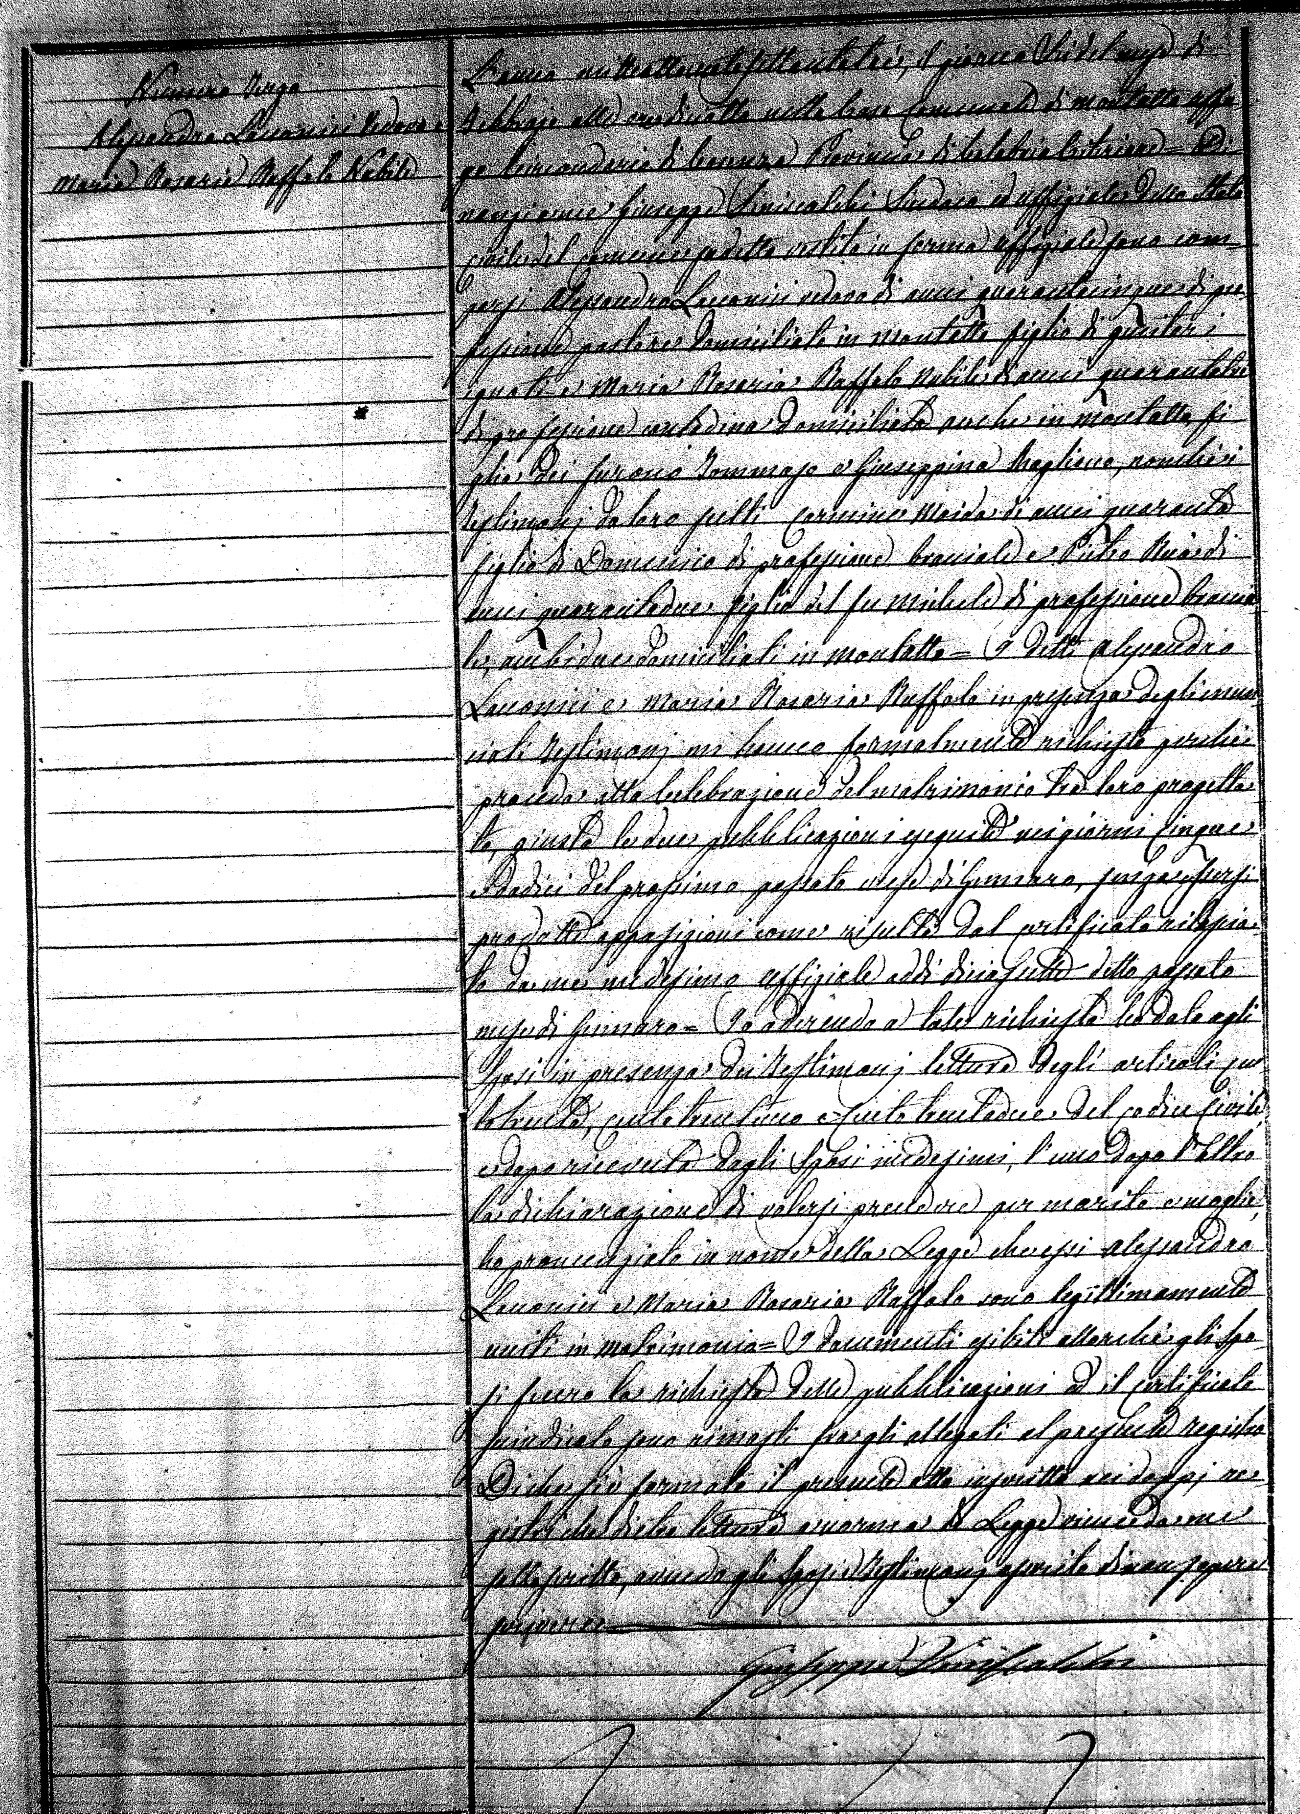 Numero Terzo
Alessandro Leconici Vedovo e
Maria Rosaria Raffele Nubile
L'anno milleottocentosettantatre, il giorno sei del mese di
Febbraio alle ore diciotto nella Casa Comunale di Montalto Uffu
go Circondario di Cosenza Provincia di Calabria Citeriore = Di
nanzi a me Giuseppe Siniscalchi Sindaco ed Uffiziale dello Stato
civile del comune sudetto vestito in forma Uffiziale sono com=
parsi Alessandro Leconici vedovo di anni quarantacinque di pro
fessione pastore domiciliato in Montalto figlio di genitori
ignoti e Maria Rosaria Raffele nubile di anni quarantatre
di professione contadina domiciliata anche in Montalto fi
glia dei furono Tommaso e Giuseppina Magliano, nonchè i
testimonj da loro scelti Carmine Maida di anni quaranta
figlio di Domenico di professione bracciale e Pietro di
anni quarantadue figlio del fu Michele di professione braccia
le, ambidue domiciliati in Montalto = I detti Alessandro
Leconici e Maria Rosaria Raffele in presenza degli enun
ciati testimonj mi hanno formalmente richiesto perchè
proceda alla celebrazione del matrimonio tra loro progetta
to, giusta le due pubblicazioni eseguite nei giorni cinque
e dodici del prossimo passato mese di Gennaro, senza essersi
prodotte opposizioni come risulta dal certificato rilascia
to da me medesimo Uffiziale addì diciassette detto passato
mese di Gennaro = Io aderendo a tale richiesta ho dato agli
sposi in presenza dei testimonj lettura degli articoli cen
totrenta, centotrentuno e centotrentadue del codice civile
e dopo ricevuta dagli sposi medesimi, l'uno dopo l'altro
la dichiarazione di volersi prendere per marito e moglie,
ho pronunziato in nome della Legge che essi Alessandro
Leconici e Maria Rosaria Raffele sono legittimamente
uniti in matrimonio = I documenti esibiti allorchè gli spo
si fecero la richiesta delle pubblicazioni ed il certificato
suindicato sono rimasti fra gli allegati al presente registro
Di che si è formato il presente atto inscritto nei doppj re
gistri che dietro lettura a norma di Legge viene da me
sottoscritto, avendo gli sposi e testimonj asserito di non sapere
scrivere
Giuseppe Siniscalchi